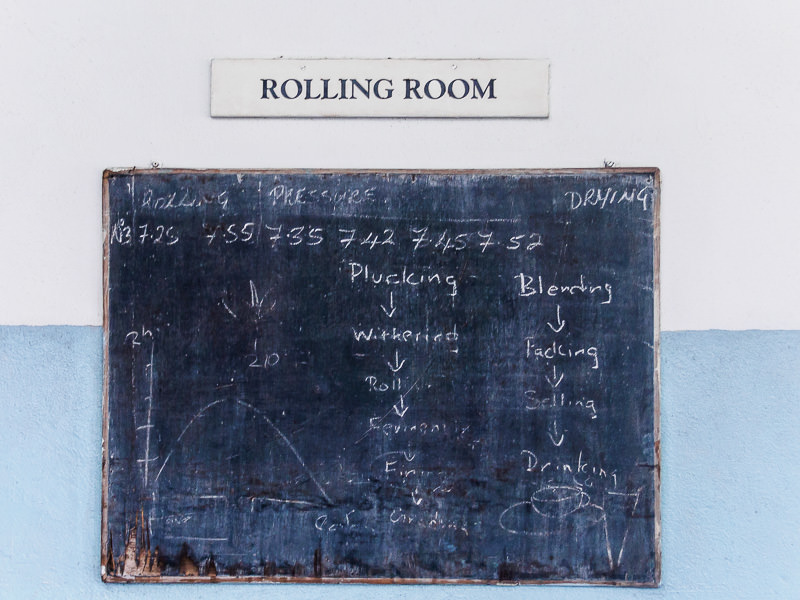 ROLLING ROOM
ROLLING PRESSURE DRYING
No3 7.25 7.55 7.35 7.42 7.45 7.52
Plucking
Withering
Roll
Firing
Grading
Blending
Packing
Selling
Drinking
2h
210